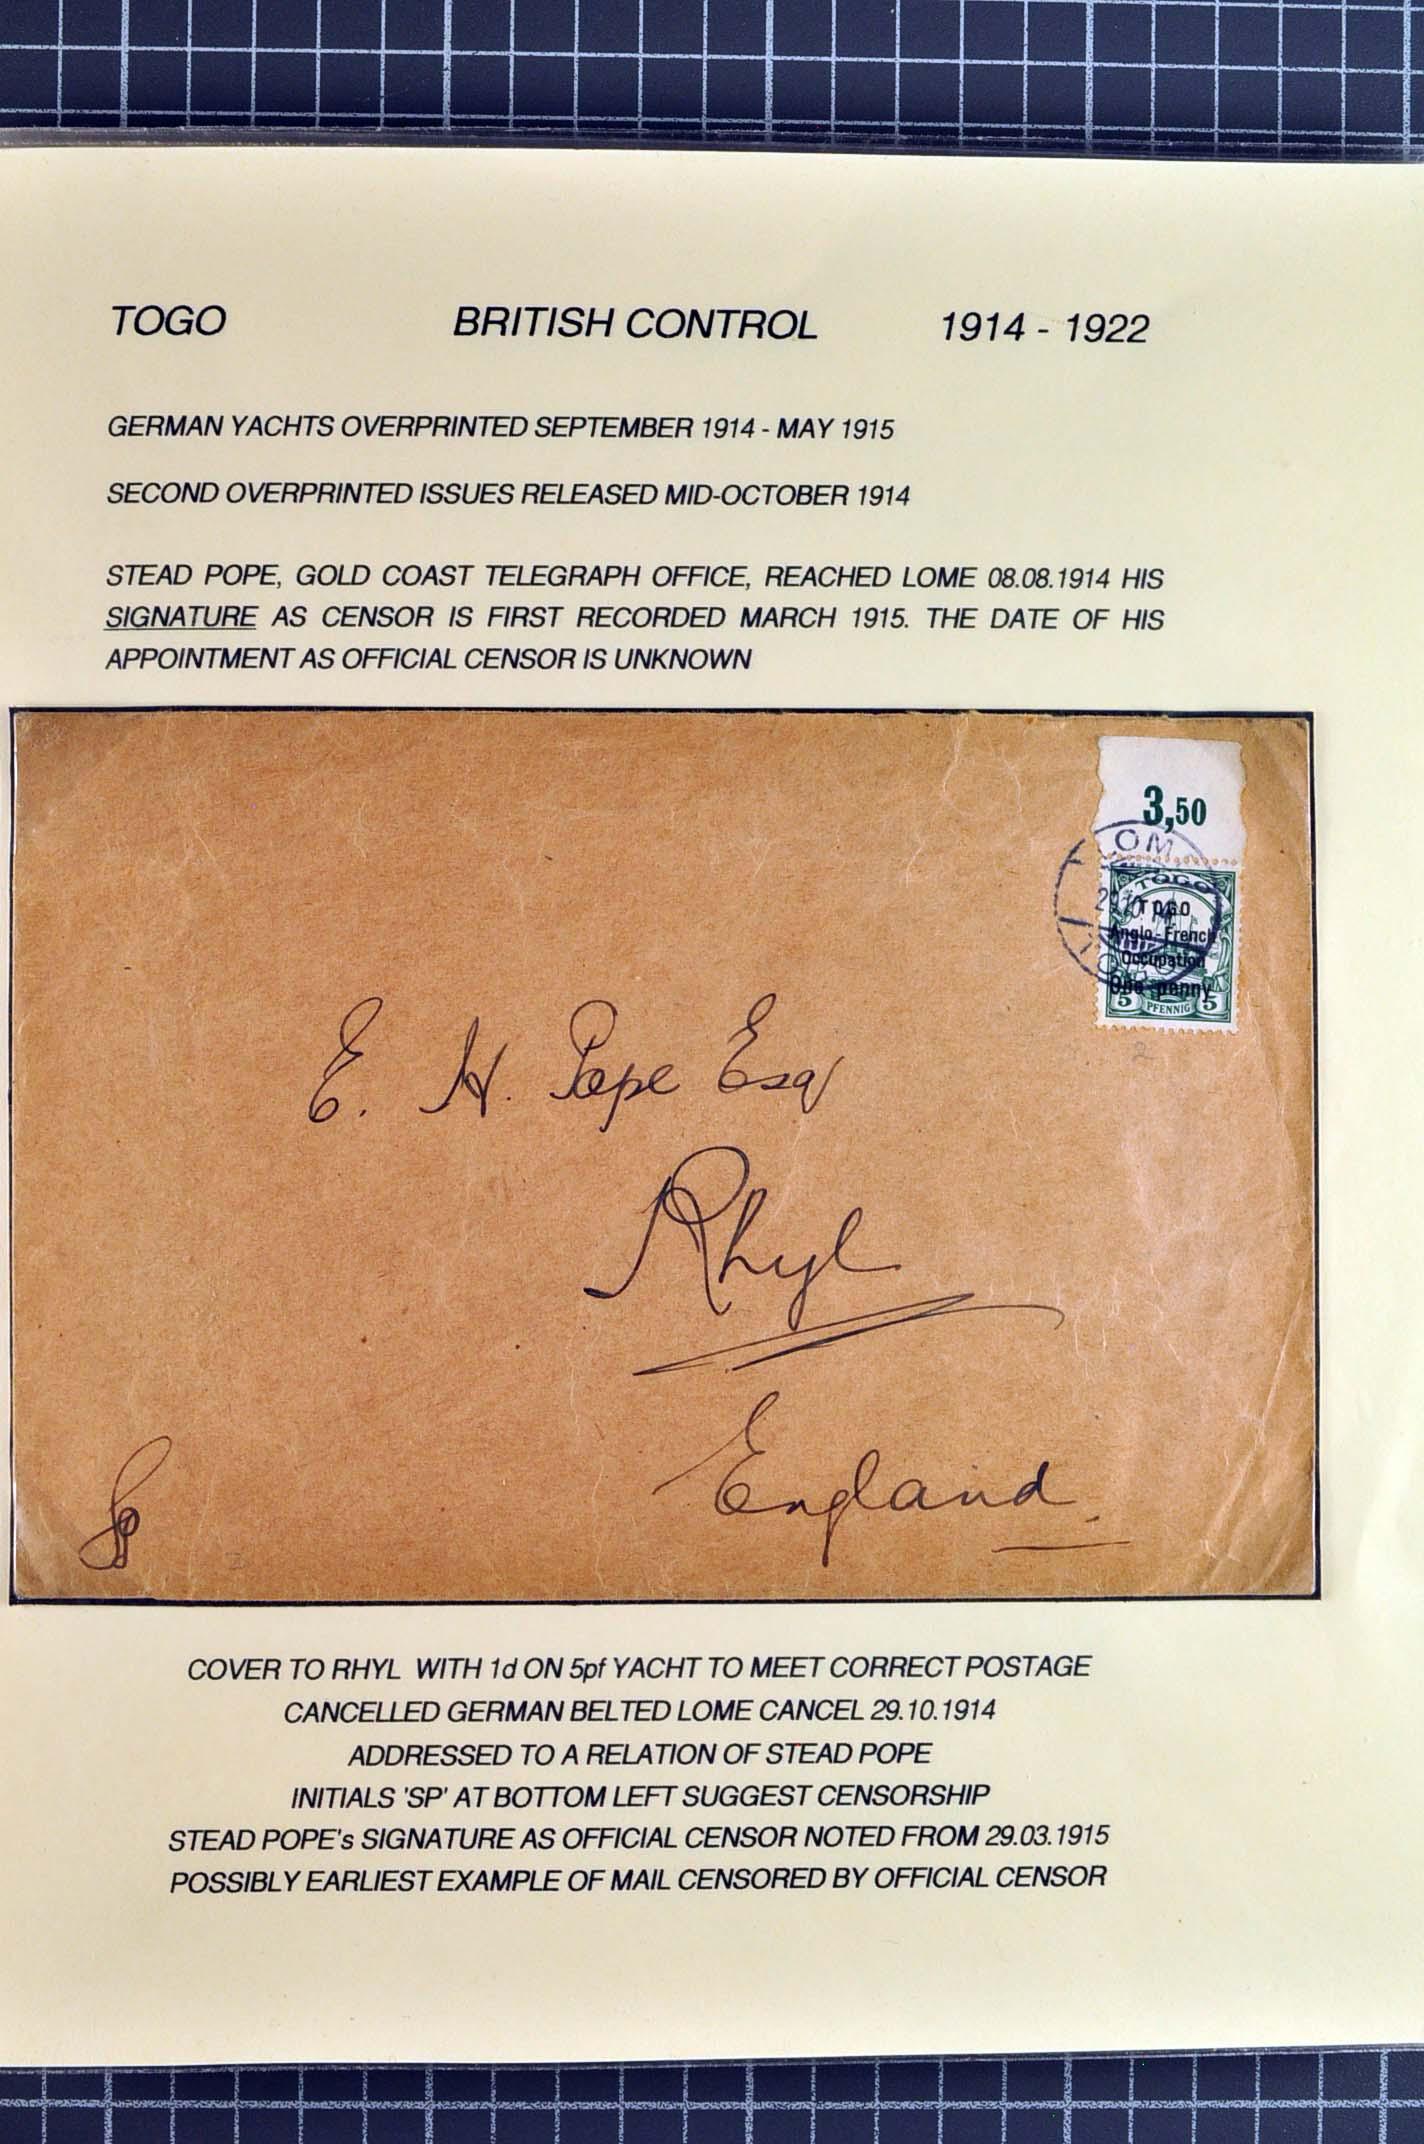 TOGO BRITISH CONTROL 1914 - 1922
GERMAN YACHTS OVERPRINTED SEPTEMBER 1914 - MAY 1915
SECOND OVERPRINTED ISSUES RELEASED MID-OCTOBER 1914
STEAD POPE, GOLD COAST TELEGRAPH OFFICE, REACHED LOME 08.08.1914 HIS
SIGNATURE AS CENSOR IS FIRST RECORDED MARCH 1915. THE DATE OF HIS
APPOINTMENT AS OFFICIAL CENSOR IS UNKNOWN
3,50
TOGO
TOGO
Anglo-French
Occupation
One penny
5 PFENNIG 5
2
E. H. Pope Esq
Rhyl
England.
SP
COVER TO RHYL WITH 1d ON 5pf YACHT TO MEET CORRECT POSTAGE
CANCELLED GERMAN BELTED LOME CANCEL 29.10.1914
ADDRESSED TO A RELATION OF STEAD POPE
INITIALS 'SP' AT BOTTOM LEFT SUGGEST CENSORSHIP
STEAD POPE's SIGNATURE AS OFFICIAL CENSOR NOTED FROM 29.03.1915
POSSIBLY EARLIEST EXAMPLE OF MAIL CENSORED BY OFFICIAL CENSOR